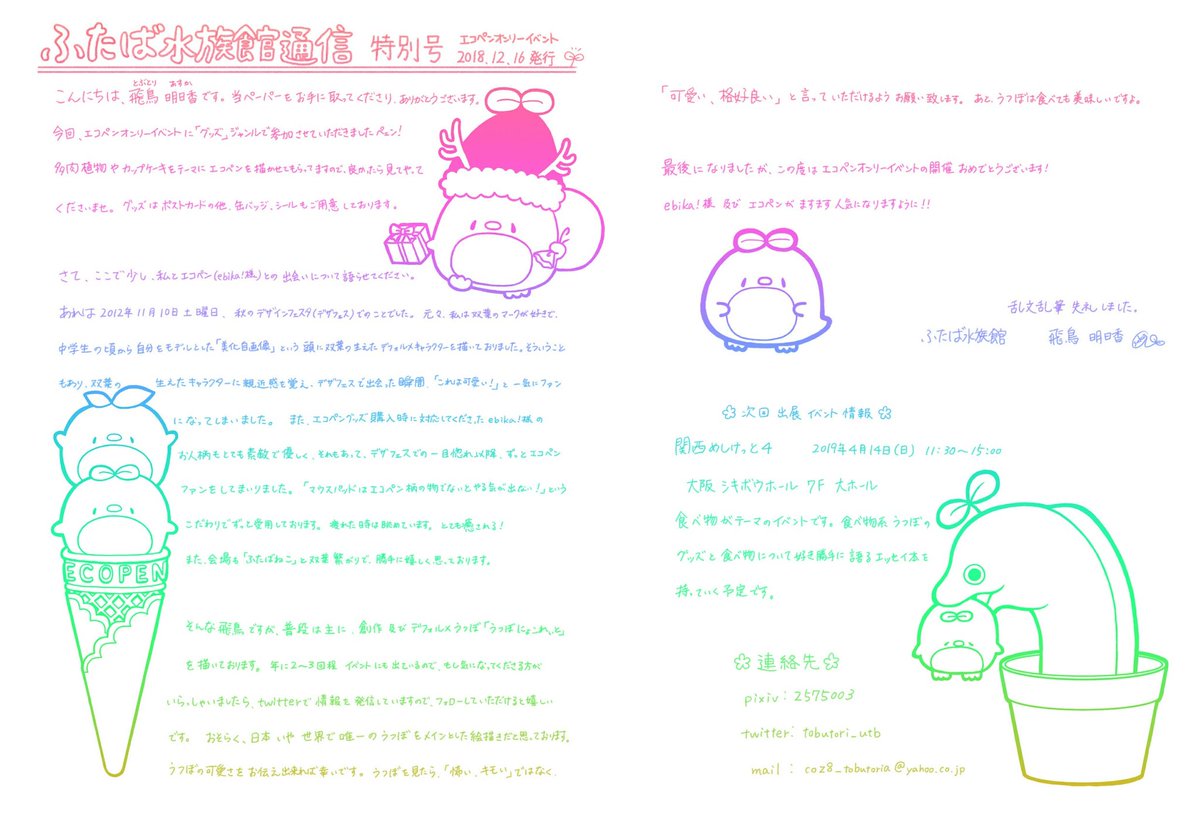 ふたば水族館通信 特別号
エコペンオンリーイベント
2018.12.16 発行
とぶとり あすか
こんにちは、飛鳥 明日香です。当ペーパーをお手に取ってくださり、ありがとうございます。
今回、エコペンオンリーイベントに「グッズ」ジャンルで参加させていただきましたペン!
多肉植物やカップケーキをテーマにエコペンを描かせてもらってますので、良かったら見てやって
くださいませ。グッズはポストカードの他、缶バッジ、シールもご用意しております。
さて、ここで少し、私とエコペン(ebika!様)との出会いについて語らせてください。
あれは2012年11月10日土曜日、秋のデザインフェスタ(デザフェス)でのことでした。元々、私は双葉のマークが好きで、
中学生の頃から自分をモデルとした「美化自画像」という頭に双葉の生えたデフォルメキャラクターを描いておりました。そういうこと
もあり、双葉の生えたキャラクターに親近感を覚え、デザフェスで出会った瞬間、「これは可愛い!」と一気にファン
になってしまいました。 また、エコペングッズ購入時に対応してくださったebika!様の
お人柄もとても素敵で優しく、それもあって、デザフェスでの一目惚れ以降、ずっとエコペン
ファンをしてまいりました。「マウスパッドはエコペン柄の物でないとやる気が出ない!」という
こだわりでずっと愛用しております。疲れた時は眺めています。とても癒される!
また、会場も「ふたばねこ」と双葉繋がりで、勝手に嬉しく思っております。
ECOPEN
そんな飛鳥ですが、普段は主に、創作及びデフォルメうつぼ「うつぼにょこれいと」
を描いております。年に2〜3回程イベントにも出ているので、もし気になってくださる方が
いらっしゃいましたら、twitterで情報を発信していますので、フォローしていただけると嬉しい
です。 おそらく、日本いや世界で唯一のうつぼをメインとした絵描きだと思っております。
うつぼの可愛さをお伝え出来れば幸いです。うつぼを見たら、「怖い、キモい」ではなく、
「可愛い、格好良い」と言っていただけるようお願い致します。あと、うつぼは食べても美味しいですよ。
最後になりましたが、この度はエコペンオンリーイベントの開催おめでとうございます!
ebika!様及びエコペンがますます人気になりますように!!
乱文乱筆失礼しました。
ふたば水族館 飛鳥 明日香
次回出展イベント情報
関西めしけっと4 2019年4月14日(日) 11:30〜15:00
大阪シキボウホール 7F 大ホール
食べ物がテーマのイベントです。食べ物系うつぼの
グッズと食べ物について好き勝手に語るエッセイ本を
持っていく予定です。
連絡先
pixiv:2575003
twitter:tobutori_utb
mail:coz8_tobutoria@yahoo.co.jp